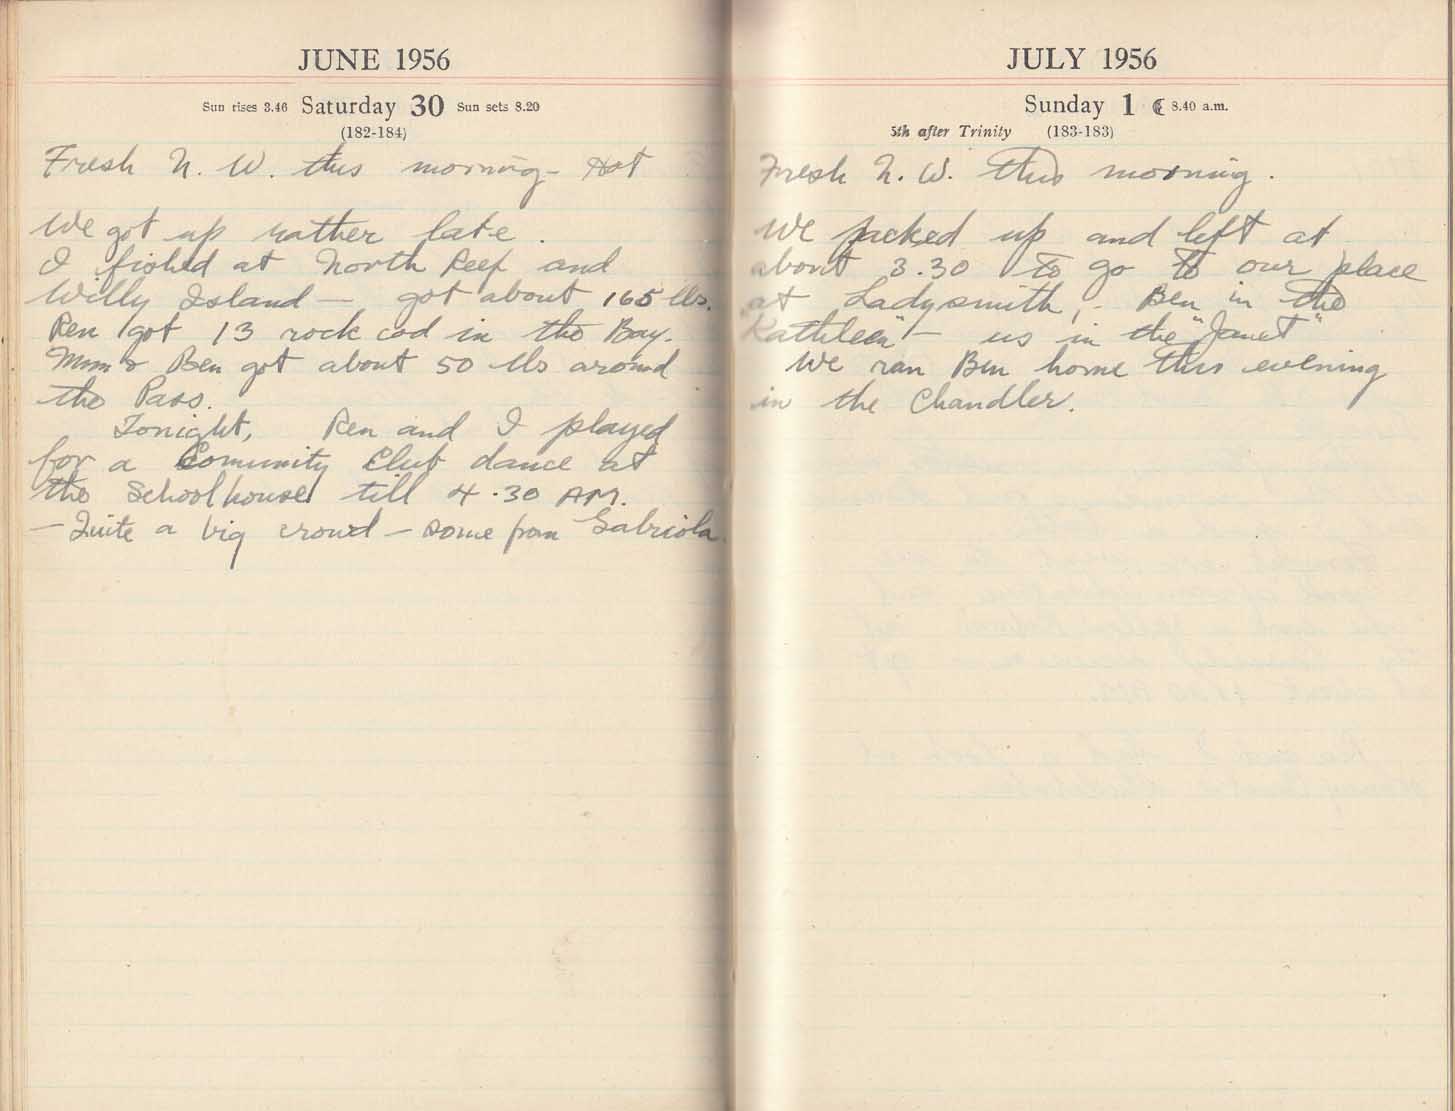 JUNE 1956
Sun rises 3.46 Saturday 30 Sun sets 8.20
(182-184)
Fresh N. W. this morning - Hot
We got up rather late.
I fished at North Reef and
Willy Island — got about 165 lbs.
Ren got 13 rock cod in the Bay.
Mom & Ben got about 50 lbs around
the Pass.
Tonight, Ren and I played
for a Comunity Club dance at
the Schoolhouse till 4.30 AM.
— Quite a big crowd — some from Gabriola.
JULY 1956
Sunday 1 ☾ 8.40 a.m.
5th after Trinity (183-183)
Fresh N. W. this morning.
We packed up and left at
about 3.30 to go to our place
at Ladysmith, - Ben in the
Kathleen" — us in the "Janet"
We ran Ben home this evening
in the Chandler.